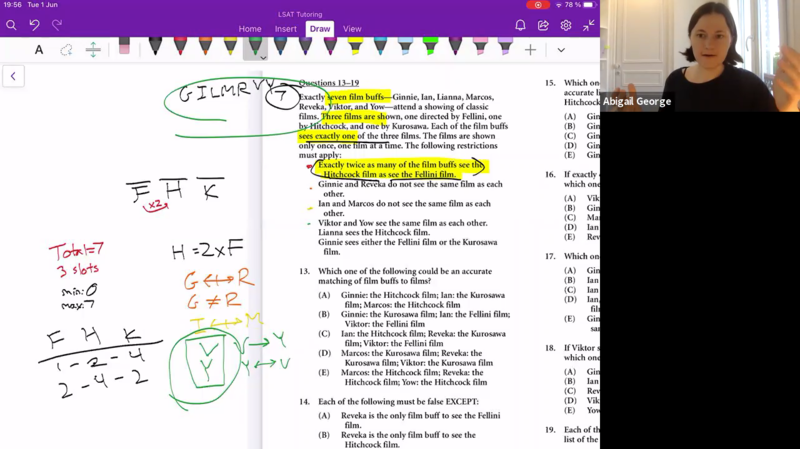 19:56 Tue 1 Jun
78 %
LSAT Tutoring
Home Insert Draw View
A
GILMRVY
7
F H K
x2
Total=7
3 slots
min: 0
max: 7
H=2xF
G ↔ R
G ≠ R
I ↔ M
F H K
1 - 2 - 4
2 - 4 - 2
V
Y
V → Y
Y ↔ V
Questions 13–19
Exactly seven film buffs—Ginnie, Ian, Lianna, Marcos,
Reveka, Viktor, and Yow—attend a showing of classic
films. Three films are shown, one directed by Fellini, one
by Hitchcock, and one by Kurosawa. Each of the film buffs
sees exactly one of the three films. The films are shown
only once, one film at a time. The following restrictions
must apply:
Exactly twice as many of the film buffs see the
Hitchcock film as see the Fellini film.
Ginnie and Reveka do not see the same film as each
other.
Ian and Marcos do not see the same film as each
other.
Viktor and Yow see the same film as each other.
Lianna sees the Hitchcock film.
Ginnie sees either the Fellini film or the Kurosawa
film.
13. Which one of the following could be an accurate
matching of film buffs to films?
(A) Ginnie: the Hitchcock film; Ian: the Kurosawa
film; Marcos: the Hitchcock film
(B) Ginnie: the Kurosawa film; Ian: the Fellini film;
Viktor: the Fellini film
(C) Ian: the Hitchcock film; Reveka: the Kurosawa
film; Viktor: the Fellini film
(D) Marcos: the Kurosawa film; Reveka: the
Kurosawa film; Viktor: the Kurosawa film
(E) Marcos: the Hitchcock film; Reveka: the
Hitchcock film; Yow: the Hitchcock film
14. Each of the following must be false EXCEPT:
(A) Reveka is the only film buff to see the Fellini
film.
(B) Reveka is the only film buff to see the
Hitchcock film.
15. Which on
accurate l
Hitchcock
(A) Gin
(B) Gin
(C) Gin
(D) Gin
(E) Gin
16. If exactly
which one
(A) Vik
(B) Gin
(C) Ma
(D) Ian
(E) Rev
17. Which one
(A) Gin
(B) Gin
(C) Gin
(D) Ian,
film
(E) Gin
sam
18. If Viktor s
which one
(A) Gin
(B) Ian
(C) Ian
(D) Vik
(E) Yow
19. Each of the
list of the
Abigail George